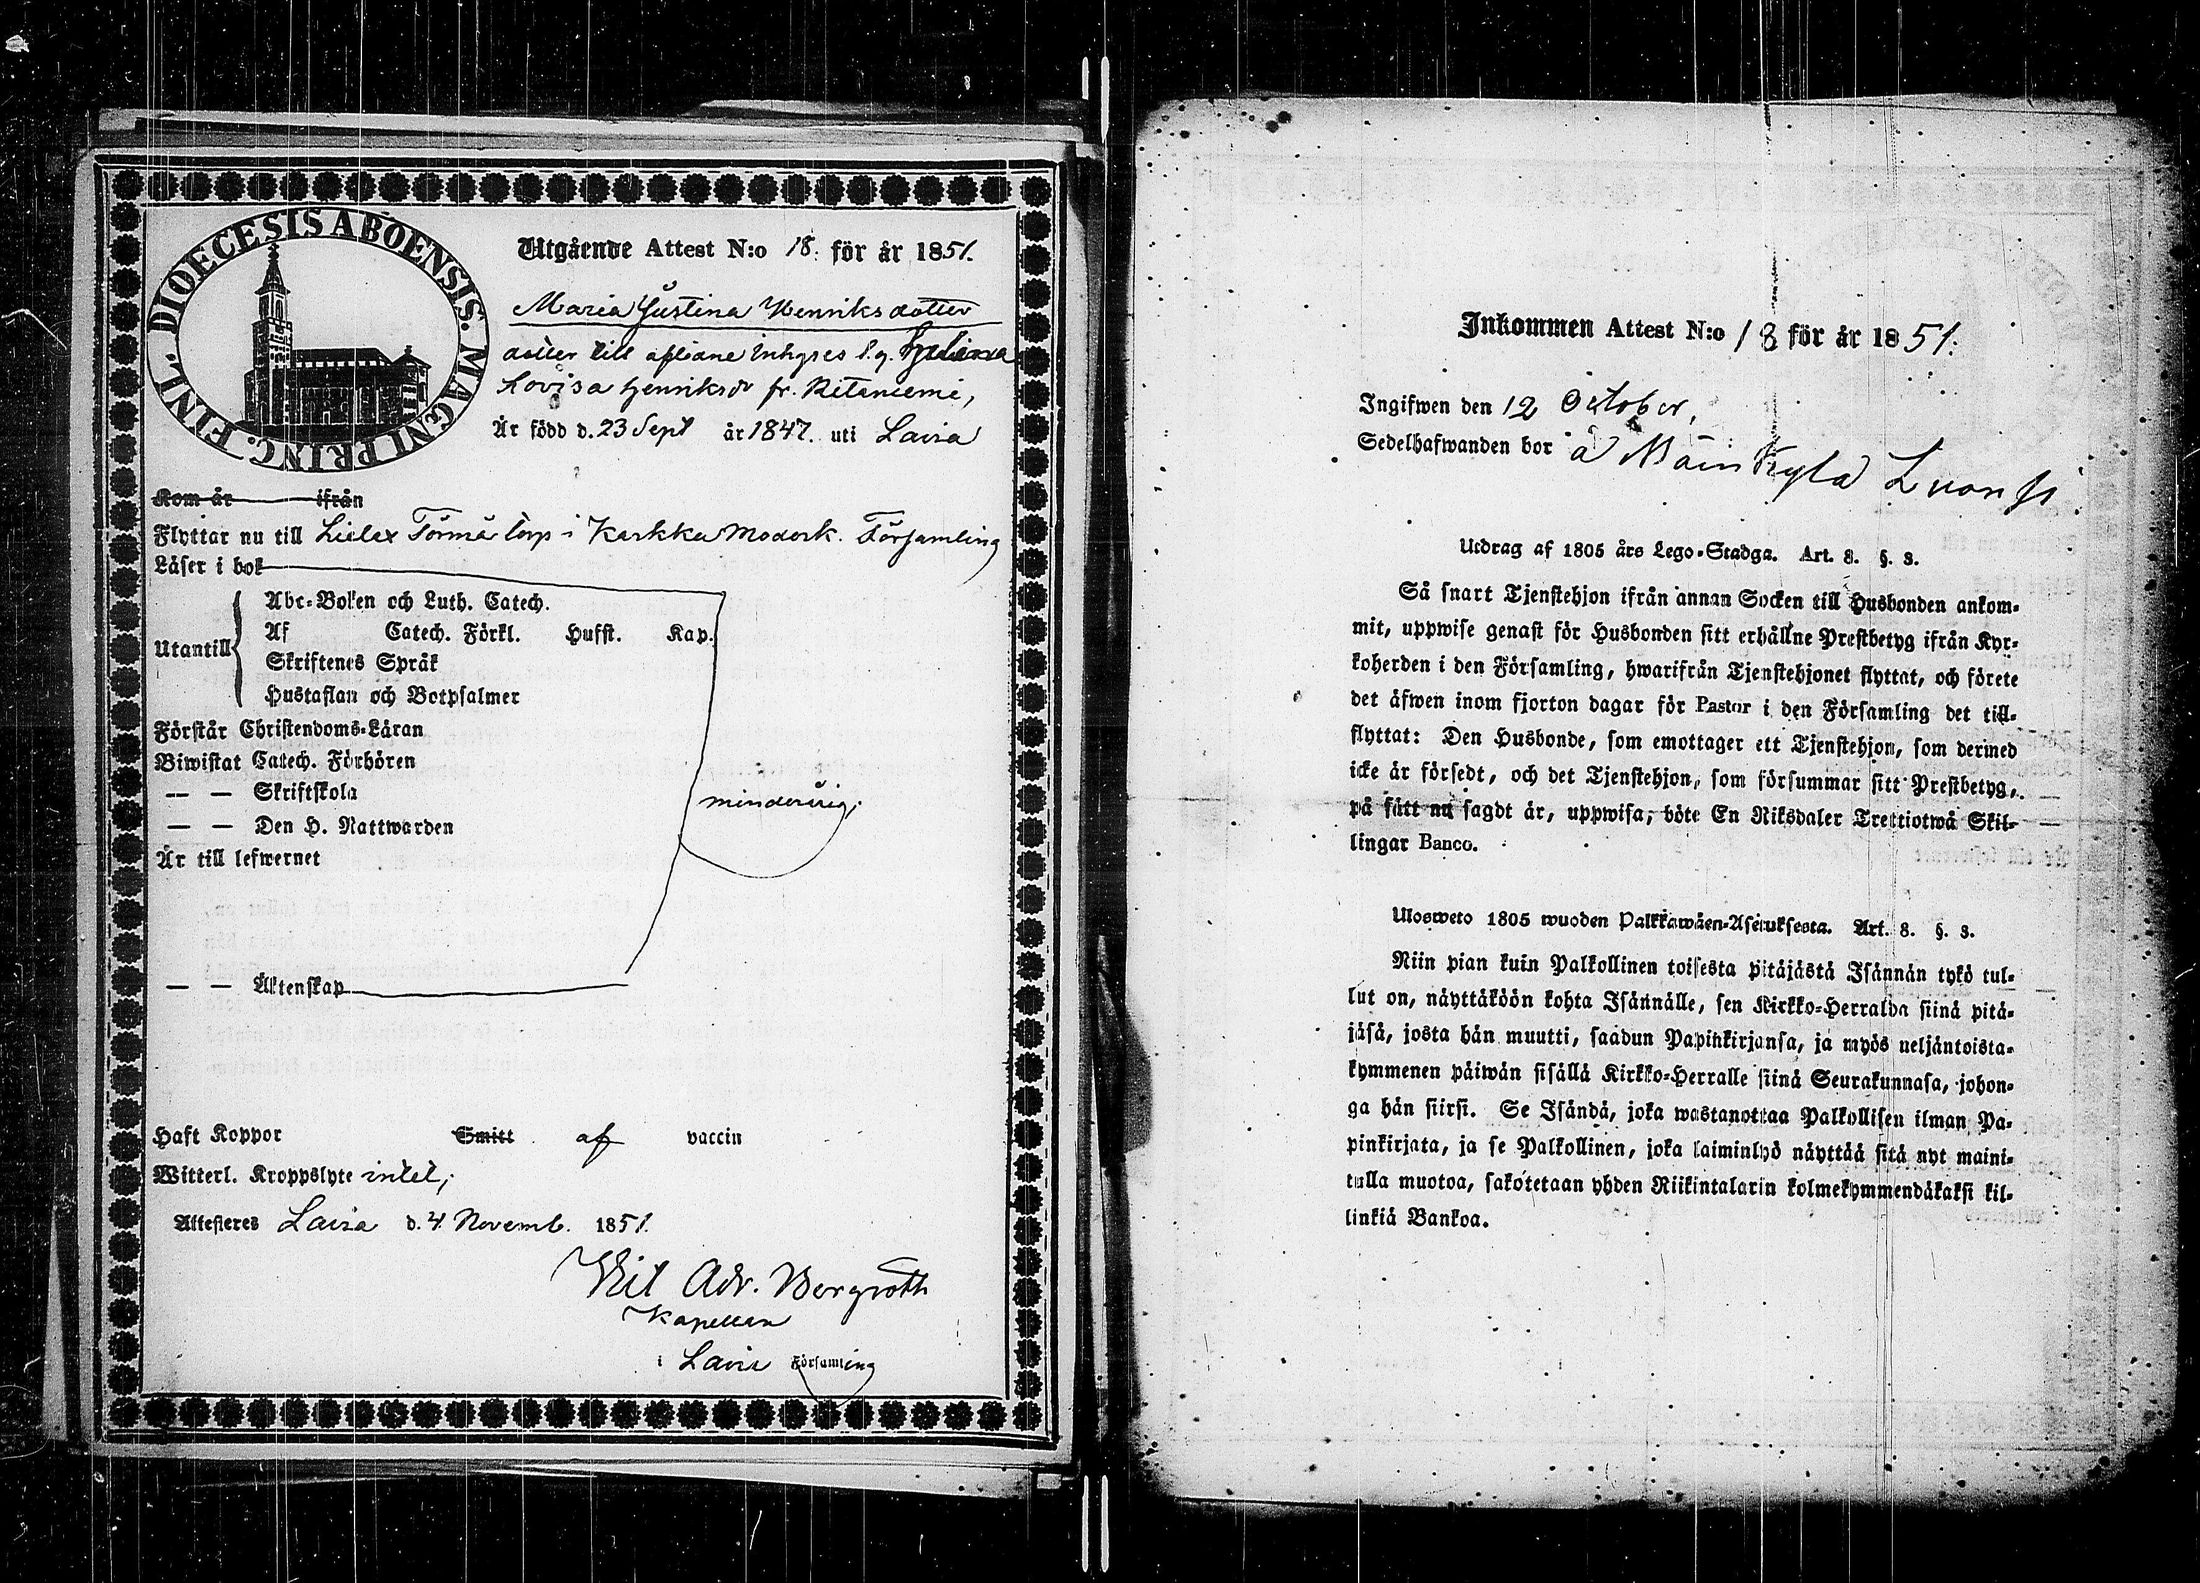 DIOECESIS ABOENSIS. MAGNI PRINC. FINL.
Utgående Attest N:o 18. för år 1851.
Maria Justina Henriksdotter
dotter till aflidne Inhyses P.q. Helena
Lovisa Henriksdr fr. Ritaniemi,
Är född d. 23 Sept år 1847. uti Lavia
Kom år ifrån
Flyttar nu till Törmä torp i Karkku Moderk. Församling
Läser i bok
Abc-Boken och Luth. Catech.
Utantill Af Catech. Förkl. Husst. Kap.
Skriftenes Språk
Hustaflan och Botpsalmer
Förstår Christendoms-Läran
Biwistat Catech. Förhören
— — Skriftskola
minderårig.
— — Den H. Nattwarden
Är till lefwernet
— — Äktenskap
Haft Koppor Smitt af vaccin
Witterl. Kroppslyte intet;
Attesteres Lavia d. 4 Novemb. 1851.
Adr. Bergroth
Kapellan
i Lavia Församling
Inkommen Attest N:o 18 för år 1851.
Ingifwen den 12 October,
Sedelhafwanden bor å
Utdrag af 1805 års Lego-Stadga. Art. 8. §. 3.
Så snart Tjenstehjon ifrån annan Socken till Husbonden ankom-
mit, uppwise genast för Husbonden sitt erhållne Prestbetyg ifrån Kyr-
koherden i den Församling, hwarifrån Tjenstehjonet flyttat, och förete
det äfwen inom fjorton dagar för Pastor i den Församling det till-
flyttat: Den Husbonde, som emottager ett Tjenstehjon, som dermed
icke är försedt, och det Tjenstehjon, som försummar sitt Prestbetyg,
på sätt nu sagdt är, uppwisa, böte En Riksdaler Trettiotwå Skil-
lingar Banco.
Ulosweto 1805 wuoden Palkkawäen-Asetuksesta. Art. 8. §. 3.
Niin pian kuin Palkollinen toisesta pitäjästä Isännän tykö tul-
lut on, näyttäköön kohta Isännälle, sen Kirkko-Herralda siinä pitä-
jäsä, josta hän muutti, saadun Papinkirjansa, ja myös neljäntoista-
kymmenen päiwän sisällä Kirkko-Herralle siinä Seurakunnasa, johon-
ga hän siirsi. Se Isändä, joka wastanottaa Palkollisen ilman Pa-
pinkirjata, ja se Palkollinen, joka laiminlyö näyttää sitä nyt maini-
tulla muotoa, sakotetaan yhden Riikintalarin kolmekymmendäkaksi kil-
linkiä Bankoa.